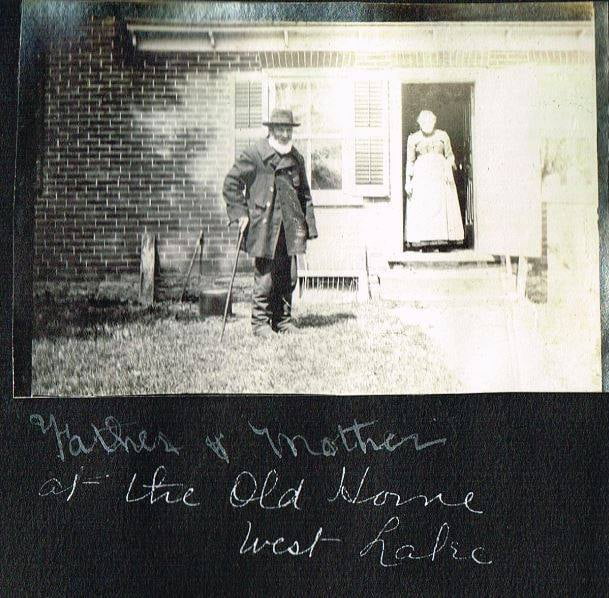 Father & Mother
at the Old Home
West Lake